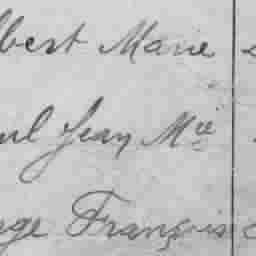 lbert Marie
ul Jean Mie
rge François